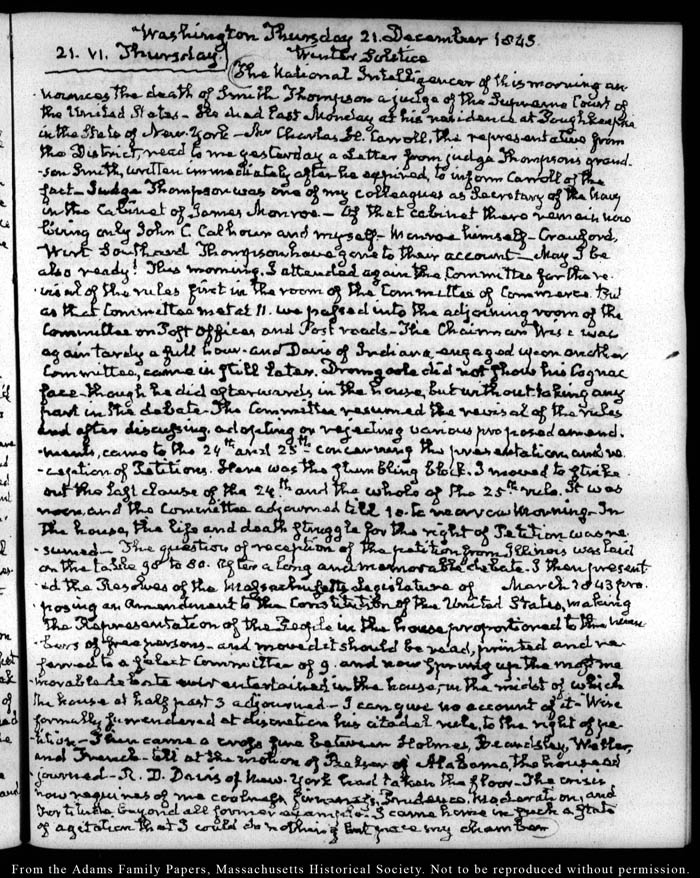 Washington Thursday 21. December 1843
21. VI. Thursday. Winter Solstice
The National Intelligencer of this morning an-
nounces the death of Smith Thompson a judge of the Supreme Court of
the United States – He died last Monday at his residence at Poughkeepsie
in the State of New-York – Mr Charles H. Carroll, the representative from
the District, read to me yesterday a Letter from judge Thompson's grand-
-son Smith, written immediately after he expired, to inform Carroll of the
fact – Judge Thompson was one of my colleagues as Secretary of the Navy
in the Cabinet of James Monroe – Of that cabinet there remain now
living only John C. Calhoun and myself – Monroe himself – Crawford,
Wirt Southard Thompson have gone to their account – May I be
also ready! This morning. I attended again the Committee for the re-
-visal of the rules first in the room of the Committee of Commerce. But
as that Committee met at 11. we passed into the adjoining room of the
Committee on Post Offices, and Post roads – The Chairman Wise was
again tardy a full hour – and Davis of Indiana, engaged upon another
Committee, came in still later. Dromgoole did not show his Cognac
face – though he did afterwards in the house, but without taking any
part in the debate – The Committee resumed the revisal of the rules
and after discussing, adopting or rejecting various proposed amend-
-ments, came to the 24th and 25th – concerning the presentation and re-
-ception of Petitions. Here was the stumbling block. I moved to strike
out the last clause of the 24th and the whole of the 25th rule. It was
noon, and the Committee adjourned till 10. to morrow morning – In
the house, the life and death struggle for the right of Petition was re-
-sumed – The question of reception of the petition from Illinois was laid
on the table 98 to 80. After a long and memorable debate. I then present-
-ed the Resolves of the Massachusetts Legislature of March 1843 pro-
-posing an Amendment to the Constitution of the United States, making
the Representation of the People in the house proportioned to the num-
-bers of free persons – and moved it should be read, printed and re-
-ferred to a select Committee of 9. and now sprung up the most me-
-morable debate ever entertained in the house, in the midst of which
the house at half past 3 adjourned – I can give no account of it – Wise
formally surrendered at discretion his citadel rule, to the right of pe-
-tition – Then came a cross fire between Holmes, Beardsley, Weller,
and French – till at the motion of Belser of Alabama, the house ad-
-journed – R. D. Davis of New-York had taken the floor – The crisis
now requires of me coolness, firmness, Prudence, Moderation, and
Fortitude beyond all former example. I came home in such a state
of agitation that I could do nothing but pace my chamber
From the Adams Family Papers, Massachusetts Historical Society. Not to be reproduced without permission.